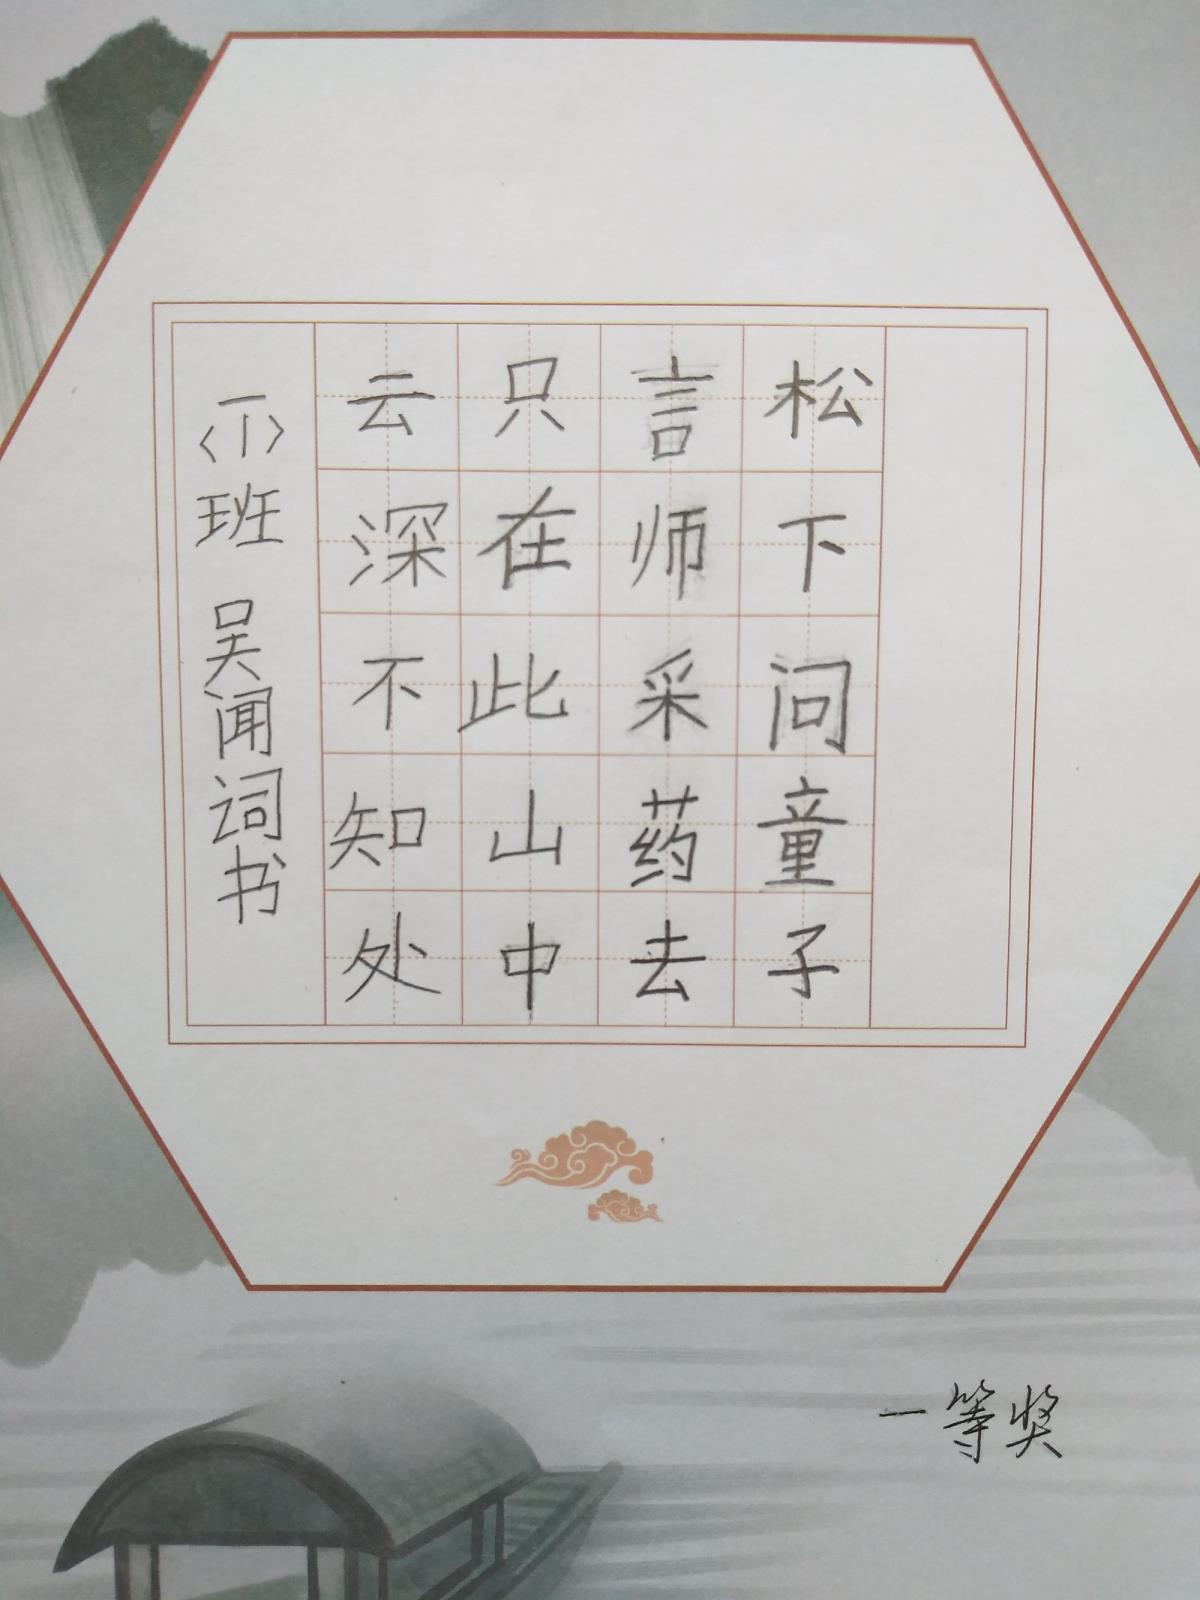 松下问童子
言师采药去
只在此山中
云深不知处
一(1)班 吴闻词书
一等奖